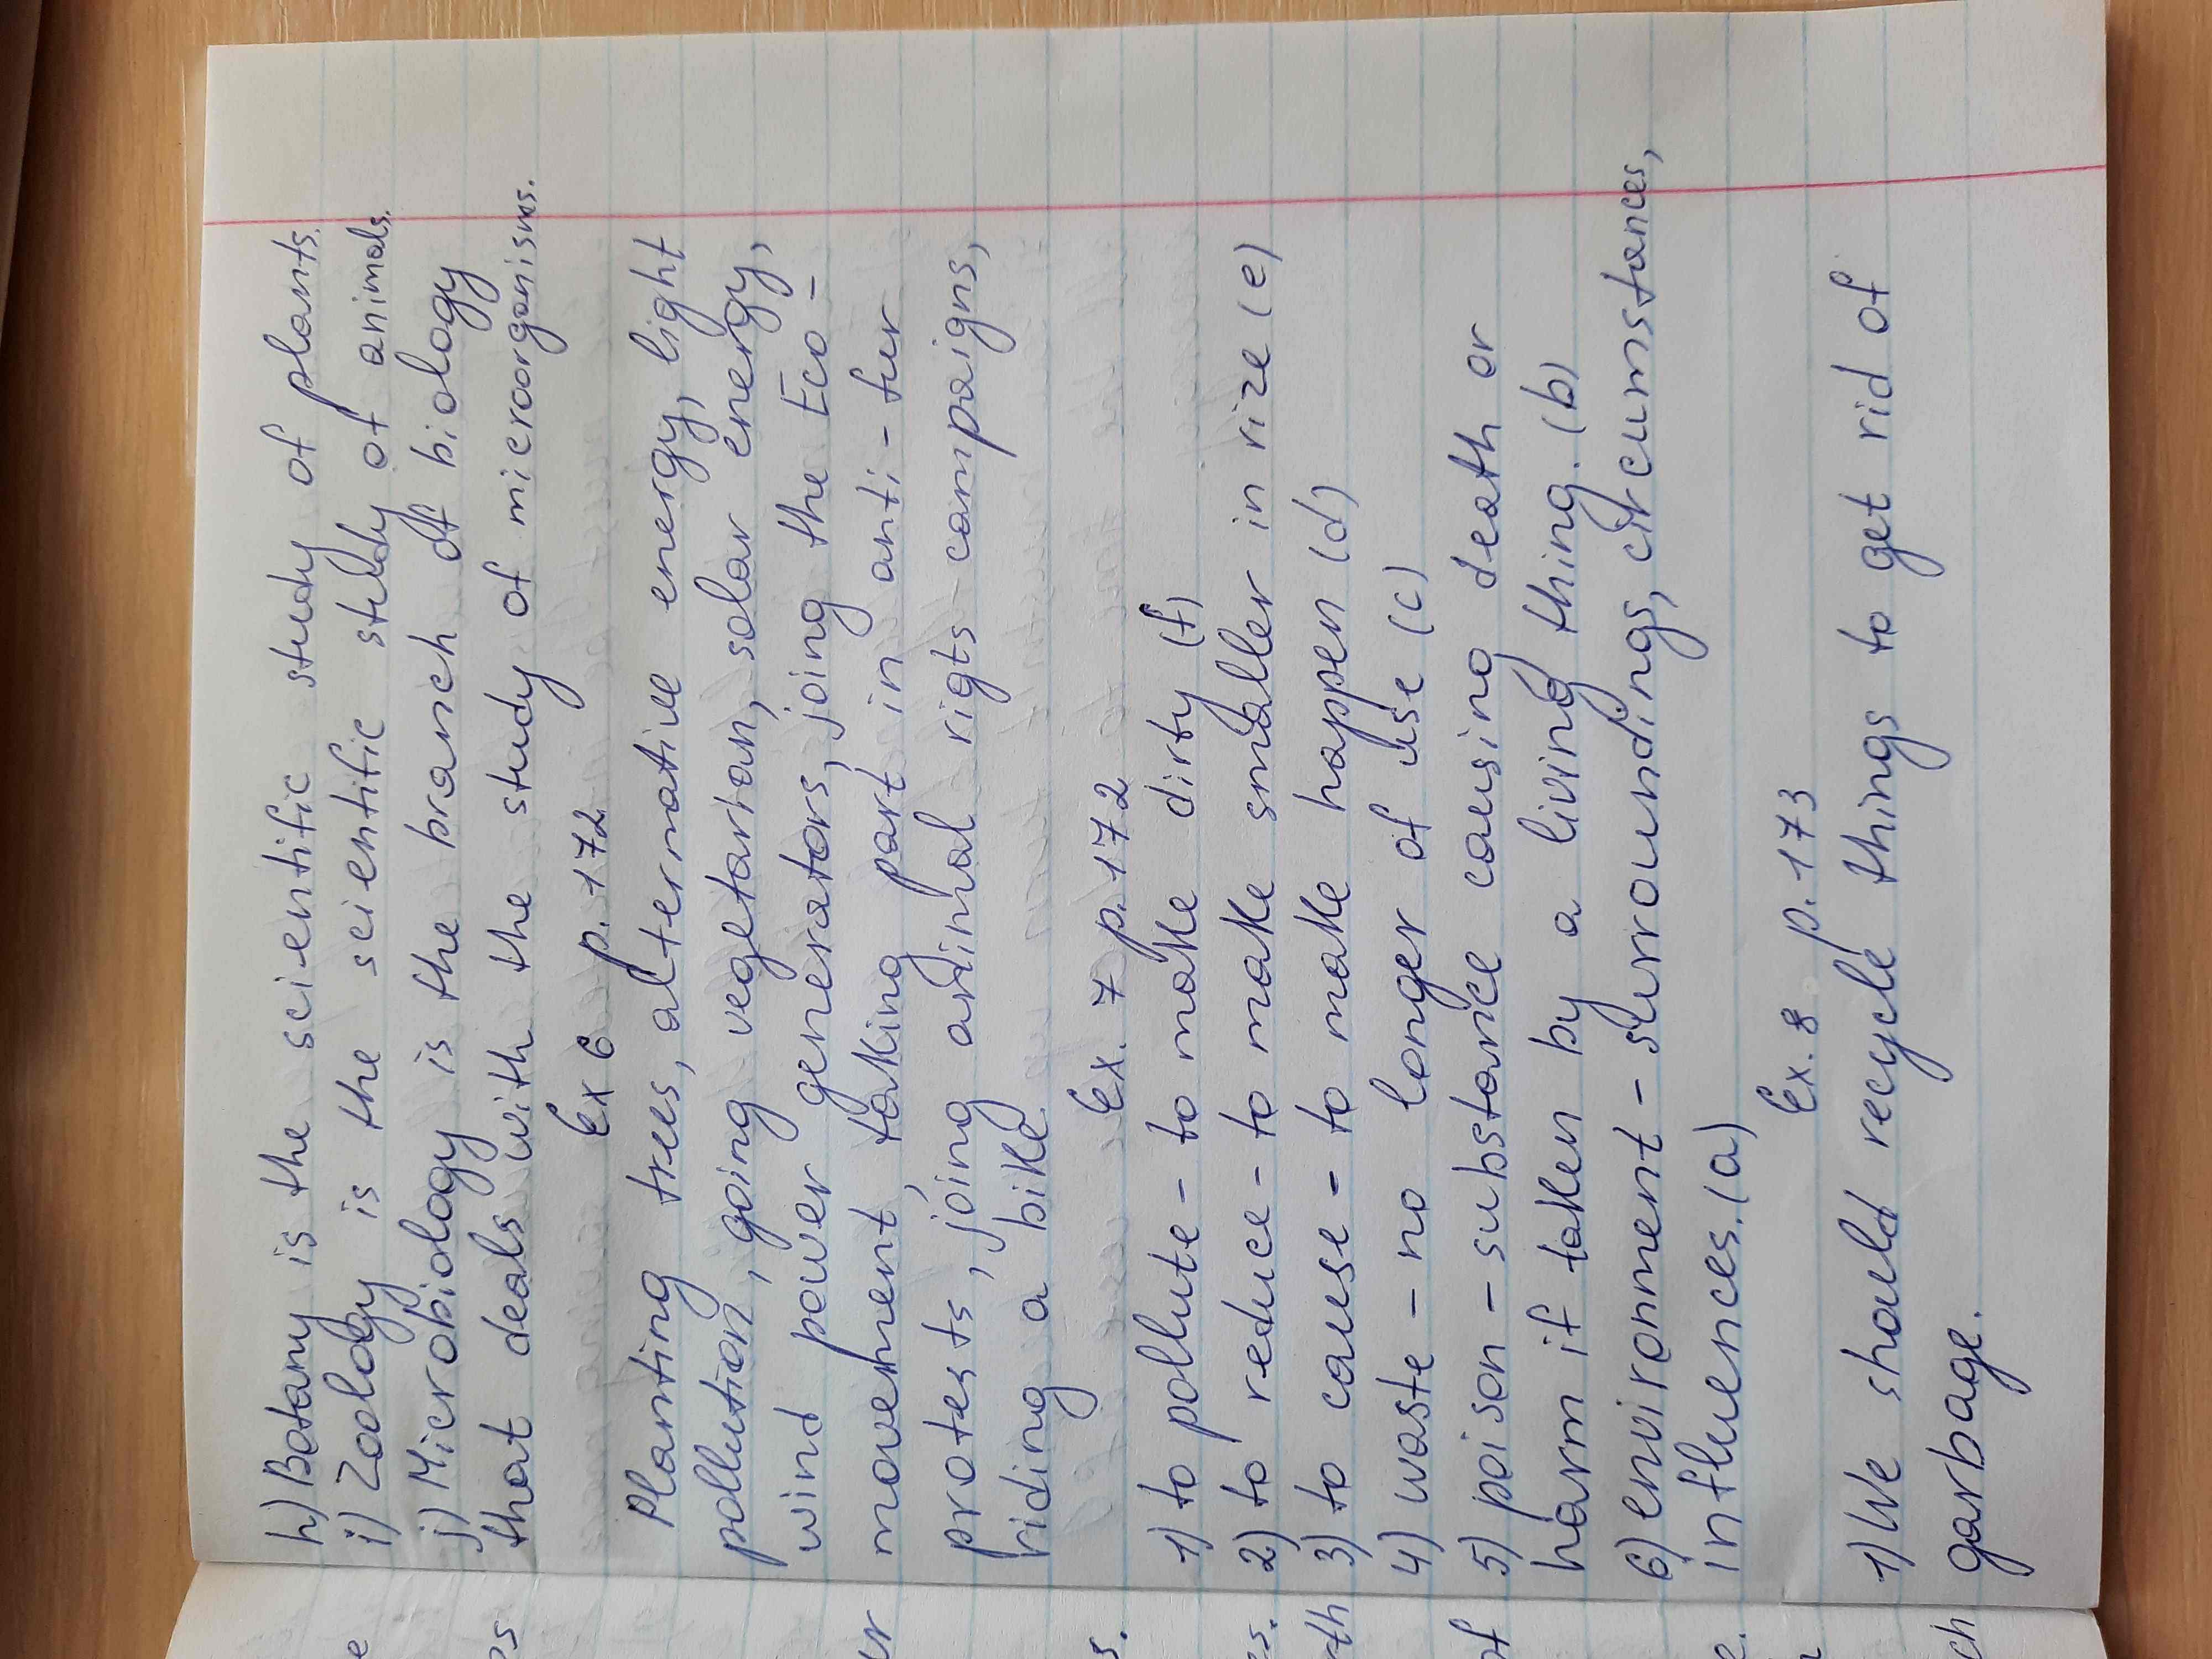 h) Botany is the scientific study of plants.
i) Zoology is the scientific study of animals.
j) Microbiology is the branch of biology
that deals with the study of microorganisms.
Ex 6 p. 172
Planting trees, alternative energy, light
pollution, going vegetarian, solar energy,
wind power generators, joing the Eco-
movement, taking part in anti-fur
protests, joing animal rigts campaigns,
riding a bike.
Ex. 7 p. 172
1) to pollute - to make dirty (f)
2) to reduce - to make smaller in rize (e)
3) to cause - to make happen (d)
4) waste - no longer of use (c)
5) poison - substance causing death or
harm if taken by a living thing. (b)
6) environment - surroundings, circumstances,
influences. (a)
Ex. 8 p. 173
1) We should recycle things to get rid of
garbage.